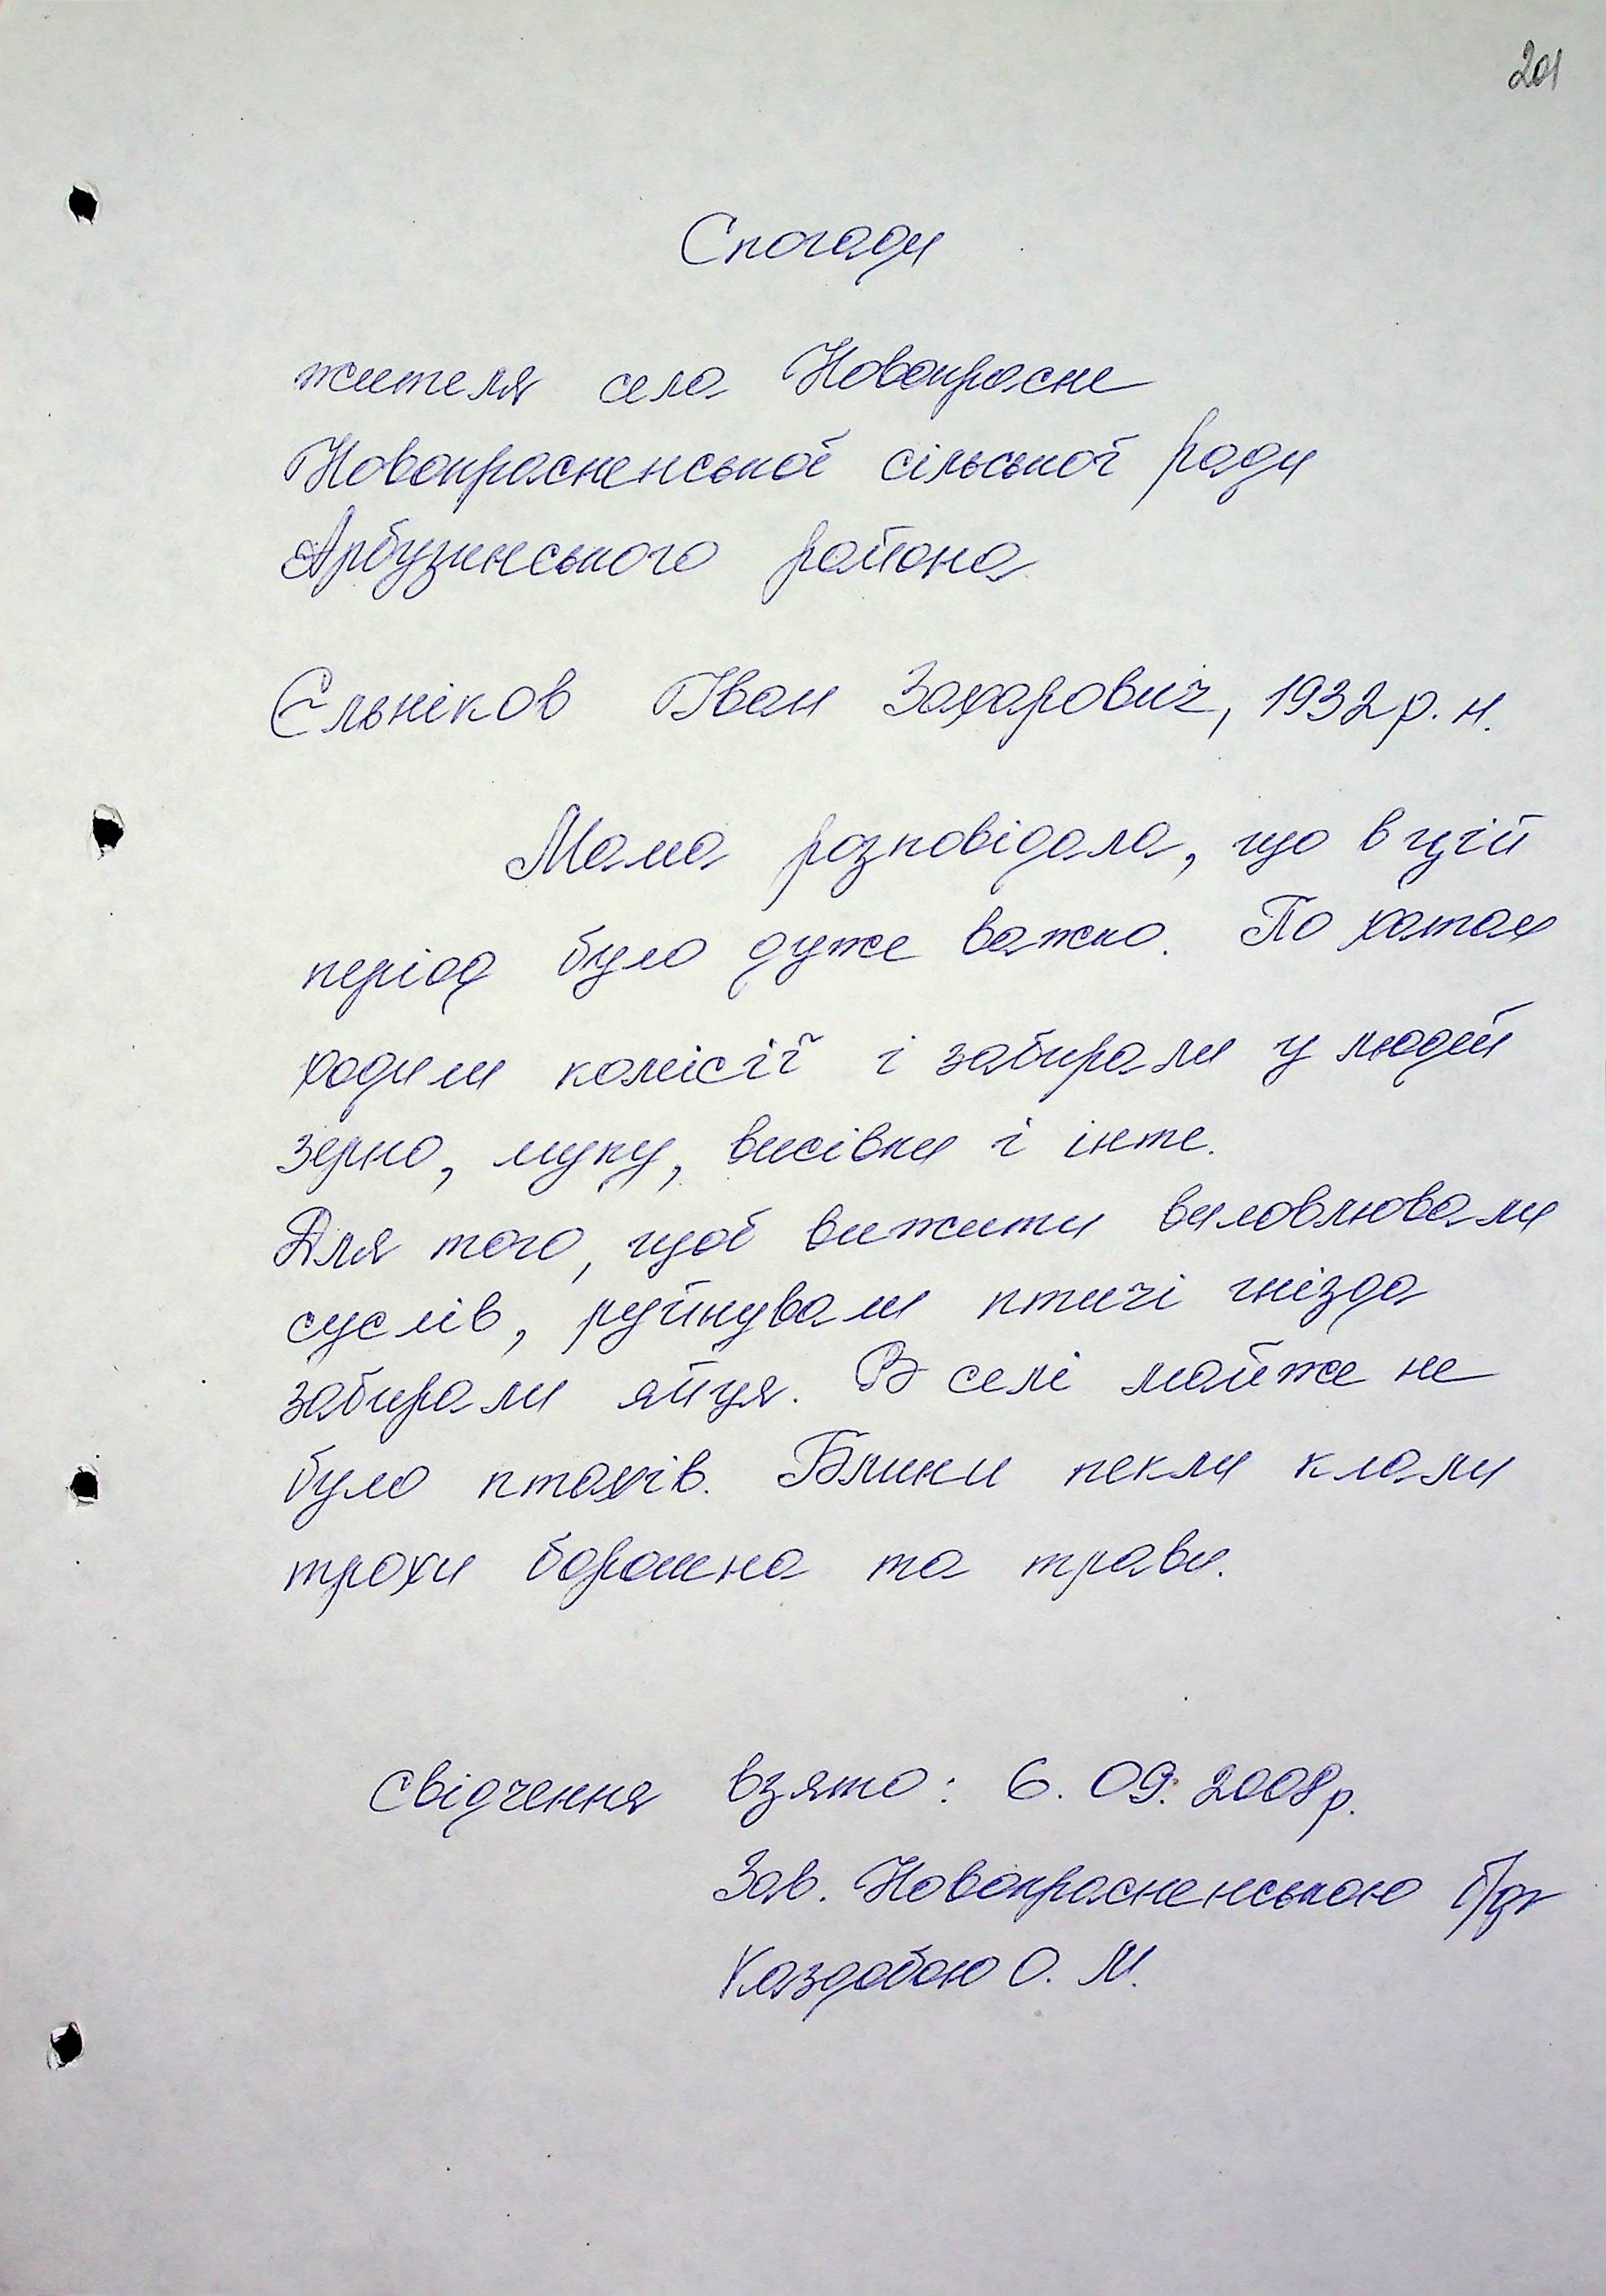 201
Спогади
жителя села Новокрасне
Новокрасненської сільської ради
Арбузинського района
Єльніков Іван Захарович, 1932 р. н.
Мама розповідала, що в цій
період було дуже важко. По хатах
ходили комісії і забирали у людей
зерно, муку, висівки і інше.
Для того, щоб вижити виловлювали
суслів, руйнували птичі гнізда
забирали яйця. В селі майже не
було птахів. Блини пекли клали
трохи борошна та трави.
Свідчення взято: 6. 09. 2008 р.
Зав. Новокрасненською б/ф
Каздобою О. М.